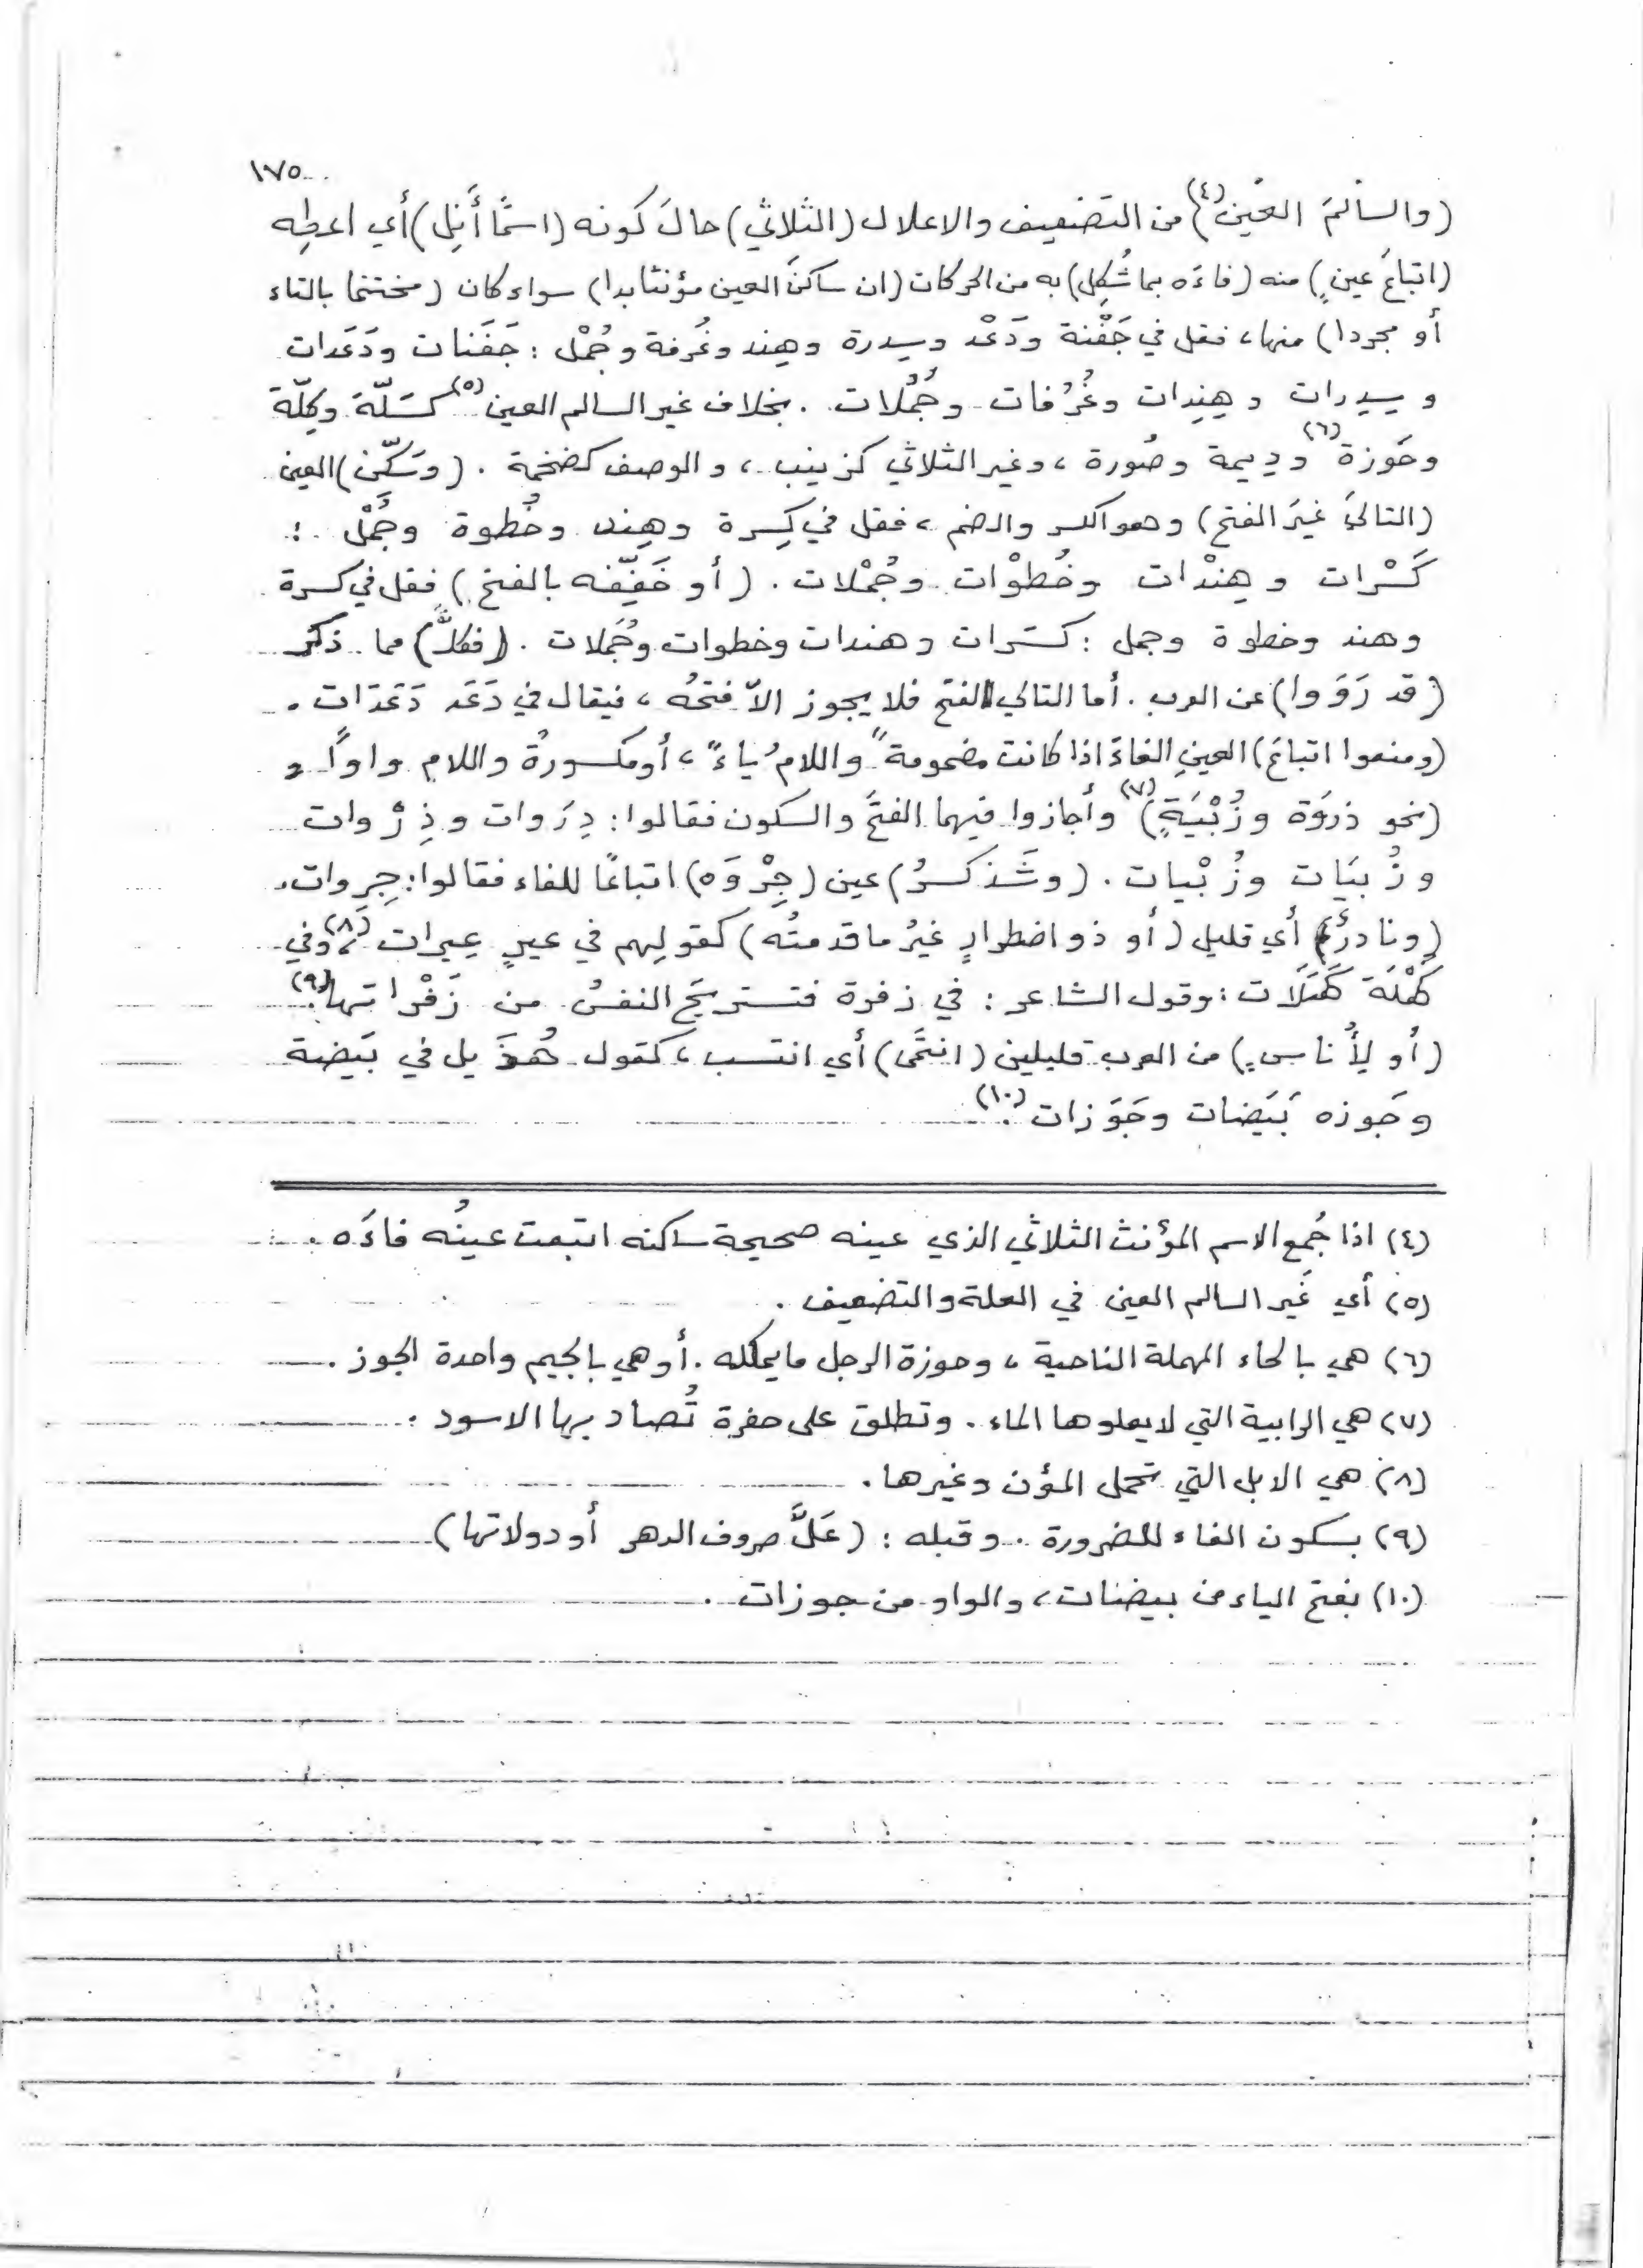 ١٧٥
(والسالمَ العين)(٤) من التضعيف والاعلال (الثلاثي) حالَ كونه (اسمًا أَنِل) أي اعطِه
(اتباعَ عينٍ) منه (فاءَه بما شُكِل) به من الحركات (ان ساكنَ العين مؤنثا بدا) سواء كان (مختتما بالتاء
أو مجردا) منها، فقل في جَفْنة ودَعْد وسِدرة وهِند وغُرفة وجُمْل : جَفَنات ودَعَدات
وسِدِرات وهِنِدات وغُرُفات وجُمُلات . بخلاف غير السالم العين(٥) كسَلّة وكِلّة
وحَوزة(٦) ودِيمة وصُورة ، وغير الثلاثي كزينب ، والوصف كضخمة . (وسَكّن) العين
(التاليَ غيرَ الفتح) وهو الكسر والضم ، فقل في كِسرة وهِند وخُطوة وجُمْل :
كَسْرات وهِنْدات وخُطْوات وجُمْلات . (أو خَفِّفه بالفتح) فقل في كسرة
وهند وخطوة وجمل : كسَرات وهندات وخطوات وجُمَلات . (فكلًّا) مما ذكر
(قد رَوَوا) عن العرب . أما التالي الفتح فلا يجوز الاّ فتحُه ، فيقال في دَعَد دَعَدَات .
(ومنعوا اتباعَ) العينِ الفاءَ اذا كانت مضمومةً واللامُ ياءً ، أو مكسورةً واللام واواً و
(نحو ذِروَة وزُبْيَةٍ)(٧) وأجازوا فيهما الفتحَ والسكون فقالوا : ذِرَوات وذِرْوات
وزُبيَات وزُبْيات . (وشَذ كسرُ) عين (جِرْوَه) اتباعًا للفاء فقالوا : جِرِوات .
(ونادرٌ) أي قليل (أو ذو اضطرارٍ غيرُ ما قدمتُه) كقولِهم في عيرٍ عِيرات(٨) ، وفي
كَهْلَة كَهَلَات ، وقول الشاعر : في زفرة فتستريحَ النفسُ من زَفْراتها(٩) .
(أو لِأُناسٍ) من العرب قليلين (انتمَى) أي انتسب ، كقول هُذَيل في بَيضة
وجَوزه بَيَضات وجَوَزات(١٠) .
(٤) اذا جُمع الاسم المؤنث الثلاثي الذي عينه صحيحة ساكنه اتبعت عينُه فاءَه .
(٥) أي غَير السالم العين في العلة والتضعيف .
(٦) هي بالحاء المهملة الناحية ، وحوزة الرجل مايملكه . أو هي بالجيم واحدة الجوز .
(٧) هي الرابية التي لايعلوها الماء . وتطلق على حفرة تُصاد بها الاسود .
(٨) هي الابل التي تحمل المؤن وغيرها .
(٩) بسكون الفاء للضرورة . وقبله : (عَلَّ صروف الدهر أو دولاتها)
(١٠) بفتح الياء من بيضات ، والواو من جوزات .